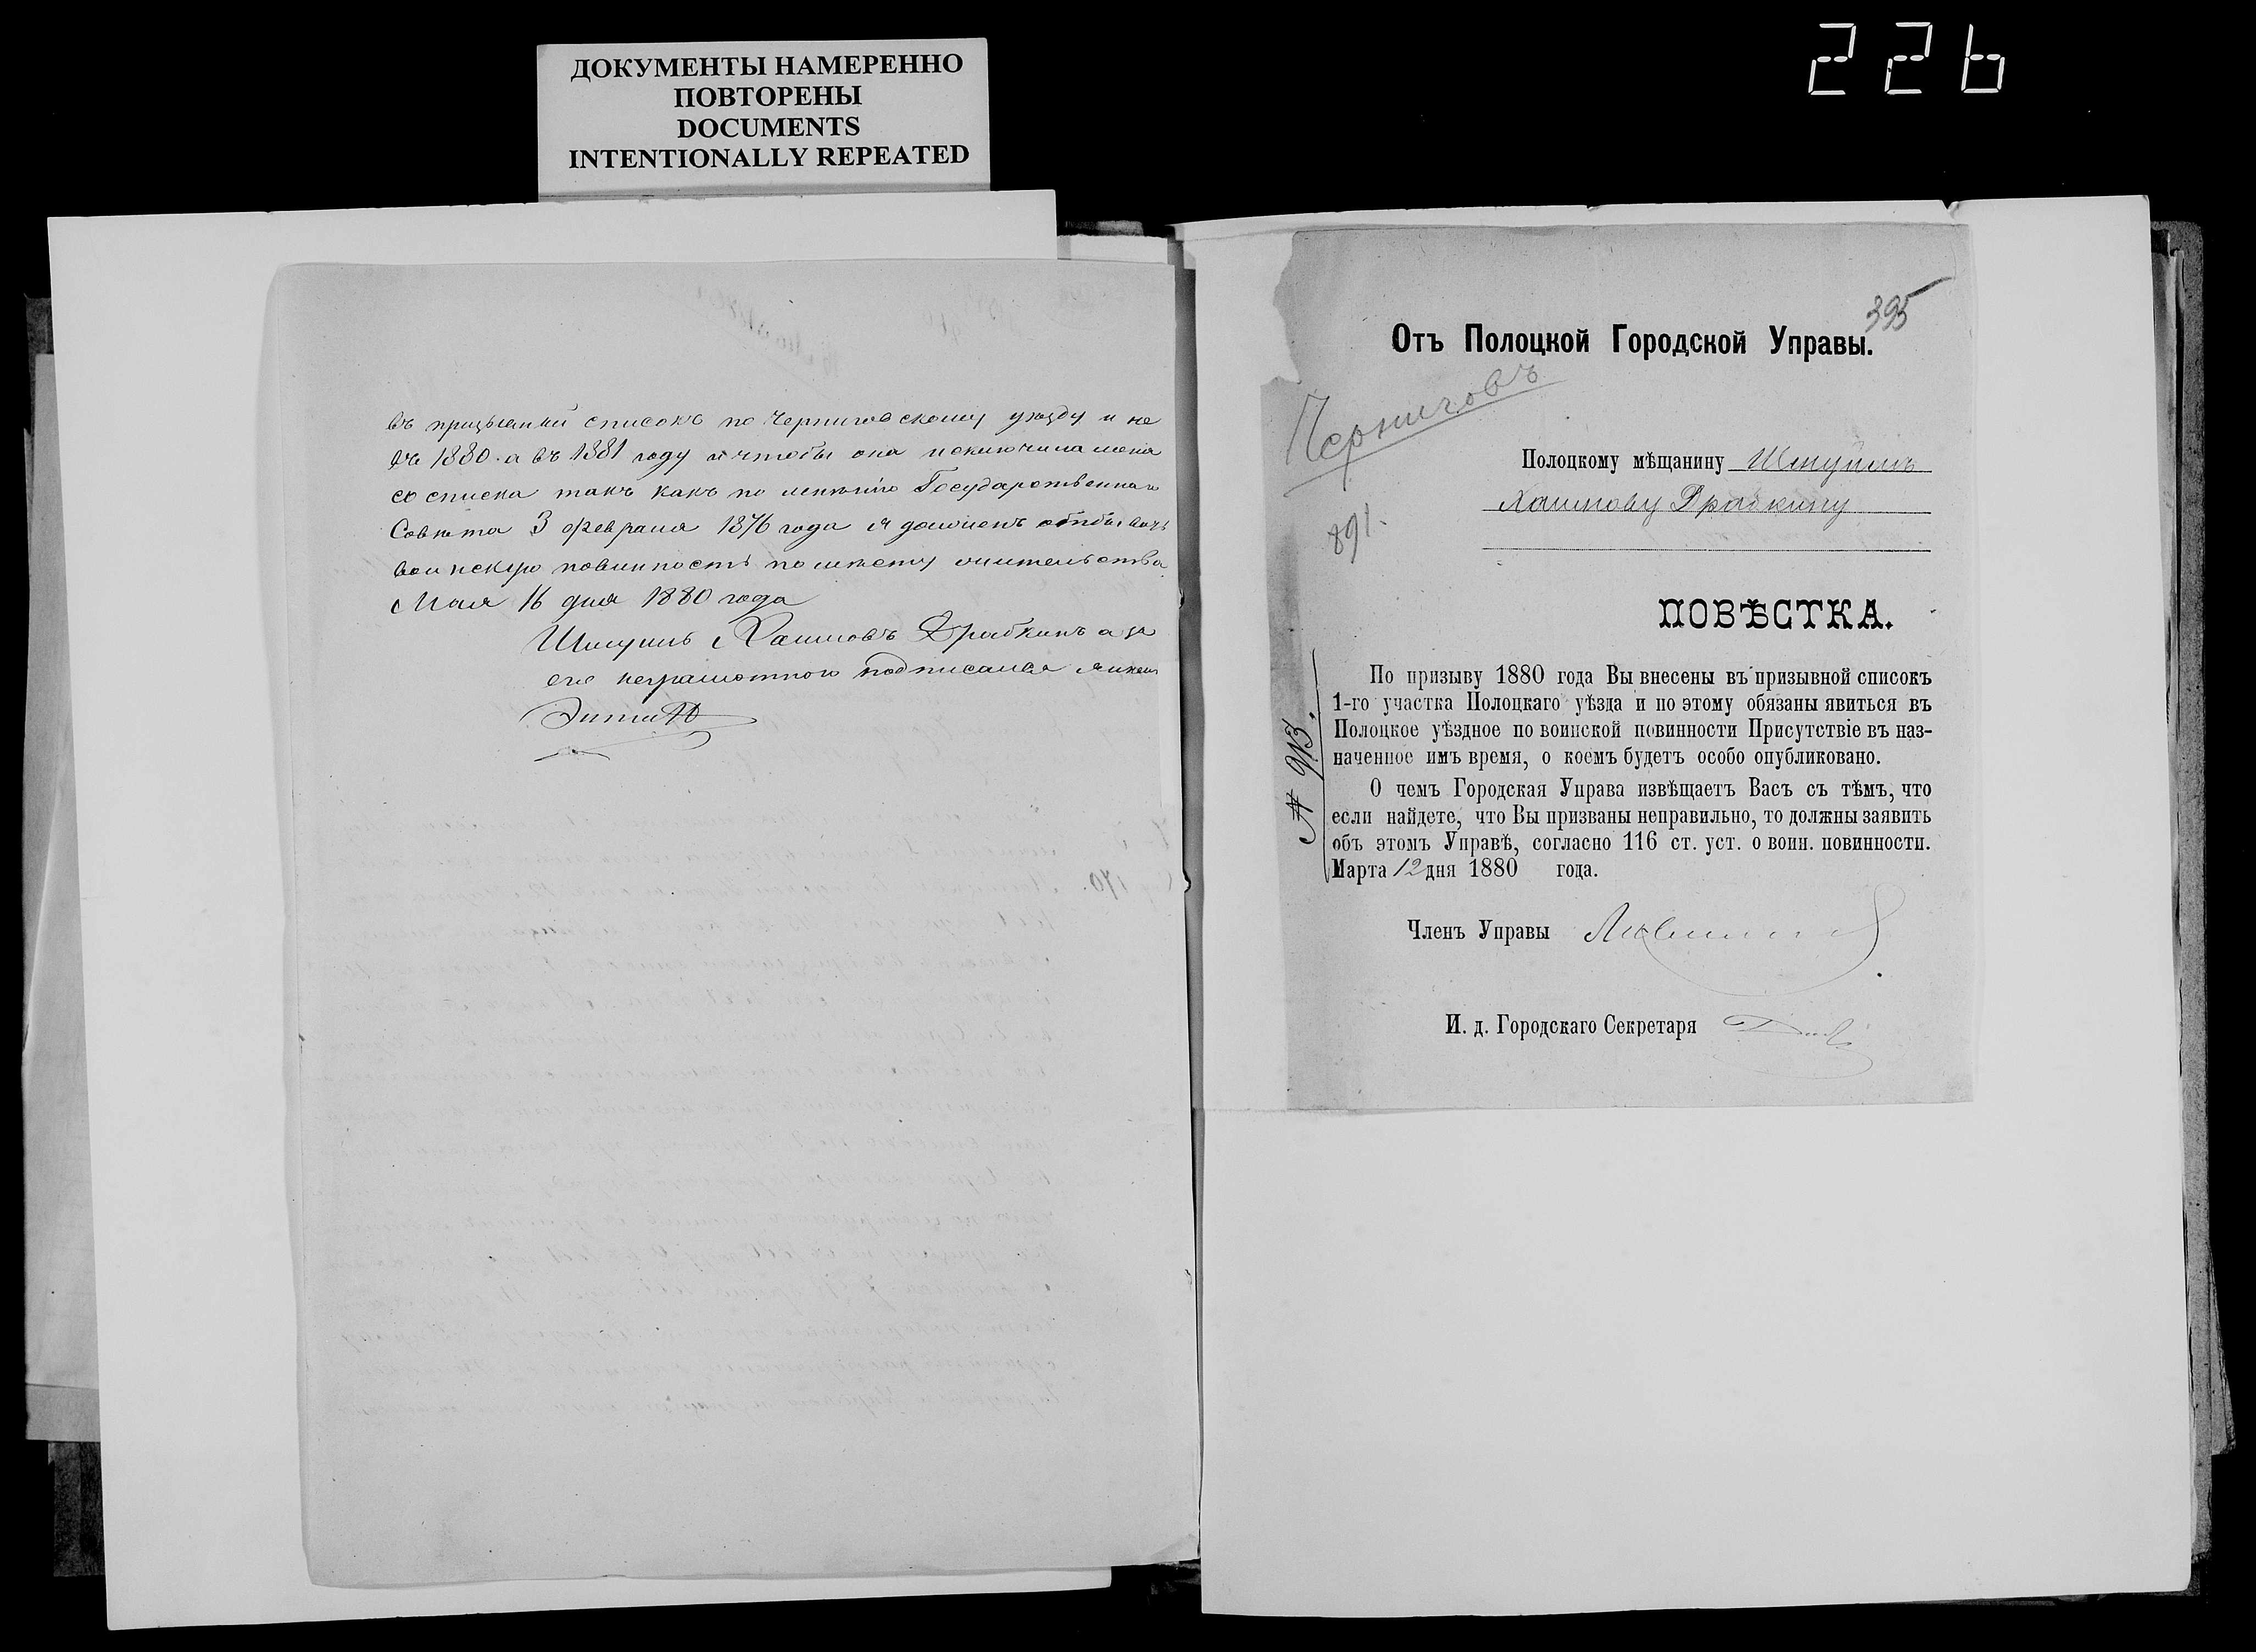 226
ДОКУМЕНТЫ НАМЕРЕННО
ПОВТОРЕНЫ
DOCUMENTS
INTENTIONALLY REPEATED
въ призывний списокъ по Черниговскому уѣзду и не
въ 1880 а въ 1881 году и чтобы она исключила меня
со списка такъ какъ по мнѣнію Государственнаго
Совѣта 3 февраля 1876 года я долженъ отбывать
воинскую повинность по мѣсту жительства
Мая 16 дня 1880 года
Шмуилъ Хаимовъ Драбкинъ а за
его неграмотного подписался
395
Отъ Полоцкой Городской Управы.
Черниговъ
891.
Полоцкому мѣщанину Шмуйлѣ
Хаимову Драбкину
ПОВѢСТКА.
№ 913.
По призыву 1880 года Вы внесены въ призывной списокъ
1-го участка Полоцкаго уѣзда и по этому обязаны явиться въ
Полоцкое уѣздное по воинской повинности Присутствіе въ наз-
наченное имъ время, о коемъ будетъ особо опубликовано.
О чемъ Городская Управа извѣщаетъ Васъ съ тѣмъ, что
если найдете, что Вы призваны неправильно, то должны заявить
объ этомъ Управѣ, согласно 116 ст. уст. о воин. повинности.
Марта 12 дня 1880 года.
Членъ Управы
И. д. Городскаго Секретаря